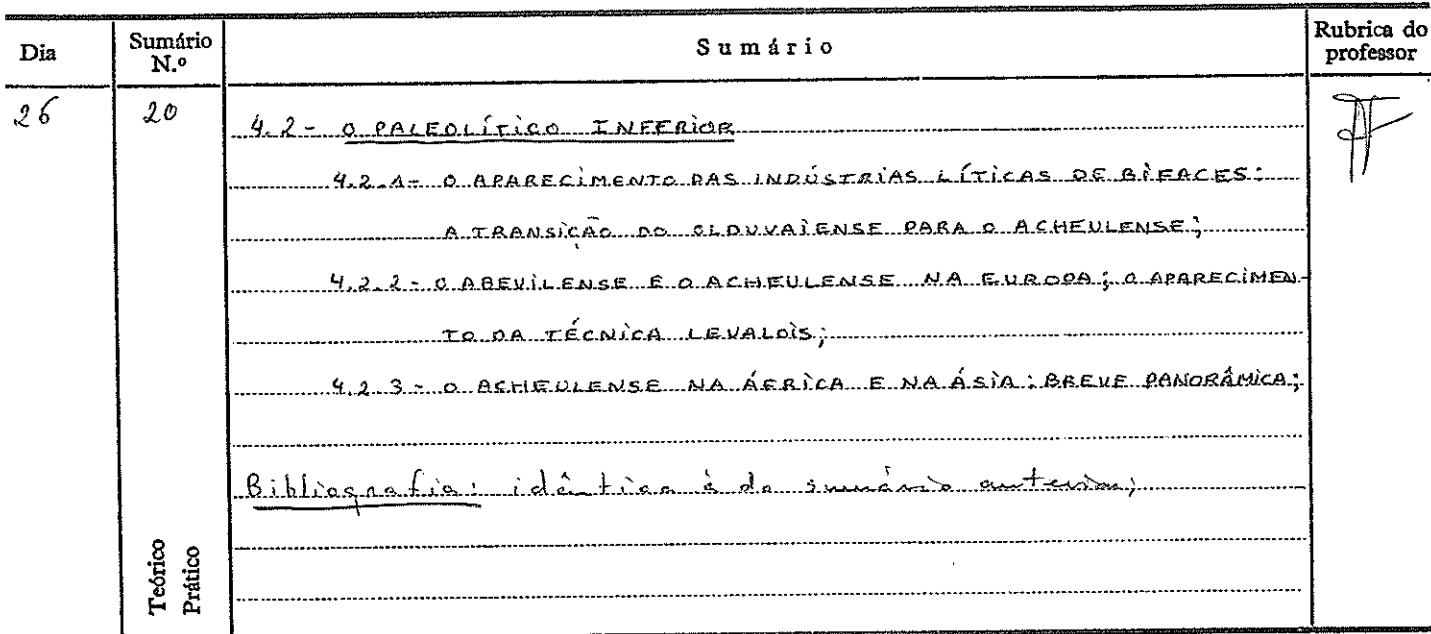 Dia Sumário N.º Sumário Rubrica do professor
26 20 4.2 - O PALEOLÍTICO INFERIOR
4.2.1 - O APARECIMENTO DAS INDÚSTRIAS LÍTICAS DE BIFACES:
A TRANSIÇÃO DO OLDUVAIENSE PARA O ACHEULENSE;
4.2.2 - O ABEVILENSE E O ACHEULENSE NA EUROPA; O APARECIMEN-
TO DA TÉCNICA LEVALOIS;
4.2.3 - O ACHEULENSE NA ÁFRICA E NA ÁSIA: BREVE PANORÂMICA;
Bibliografia: idêntica à do sumário anterior;
Teórico
Prático